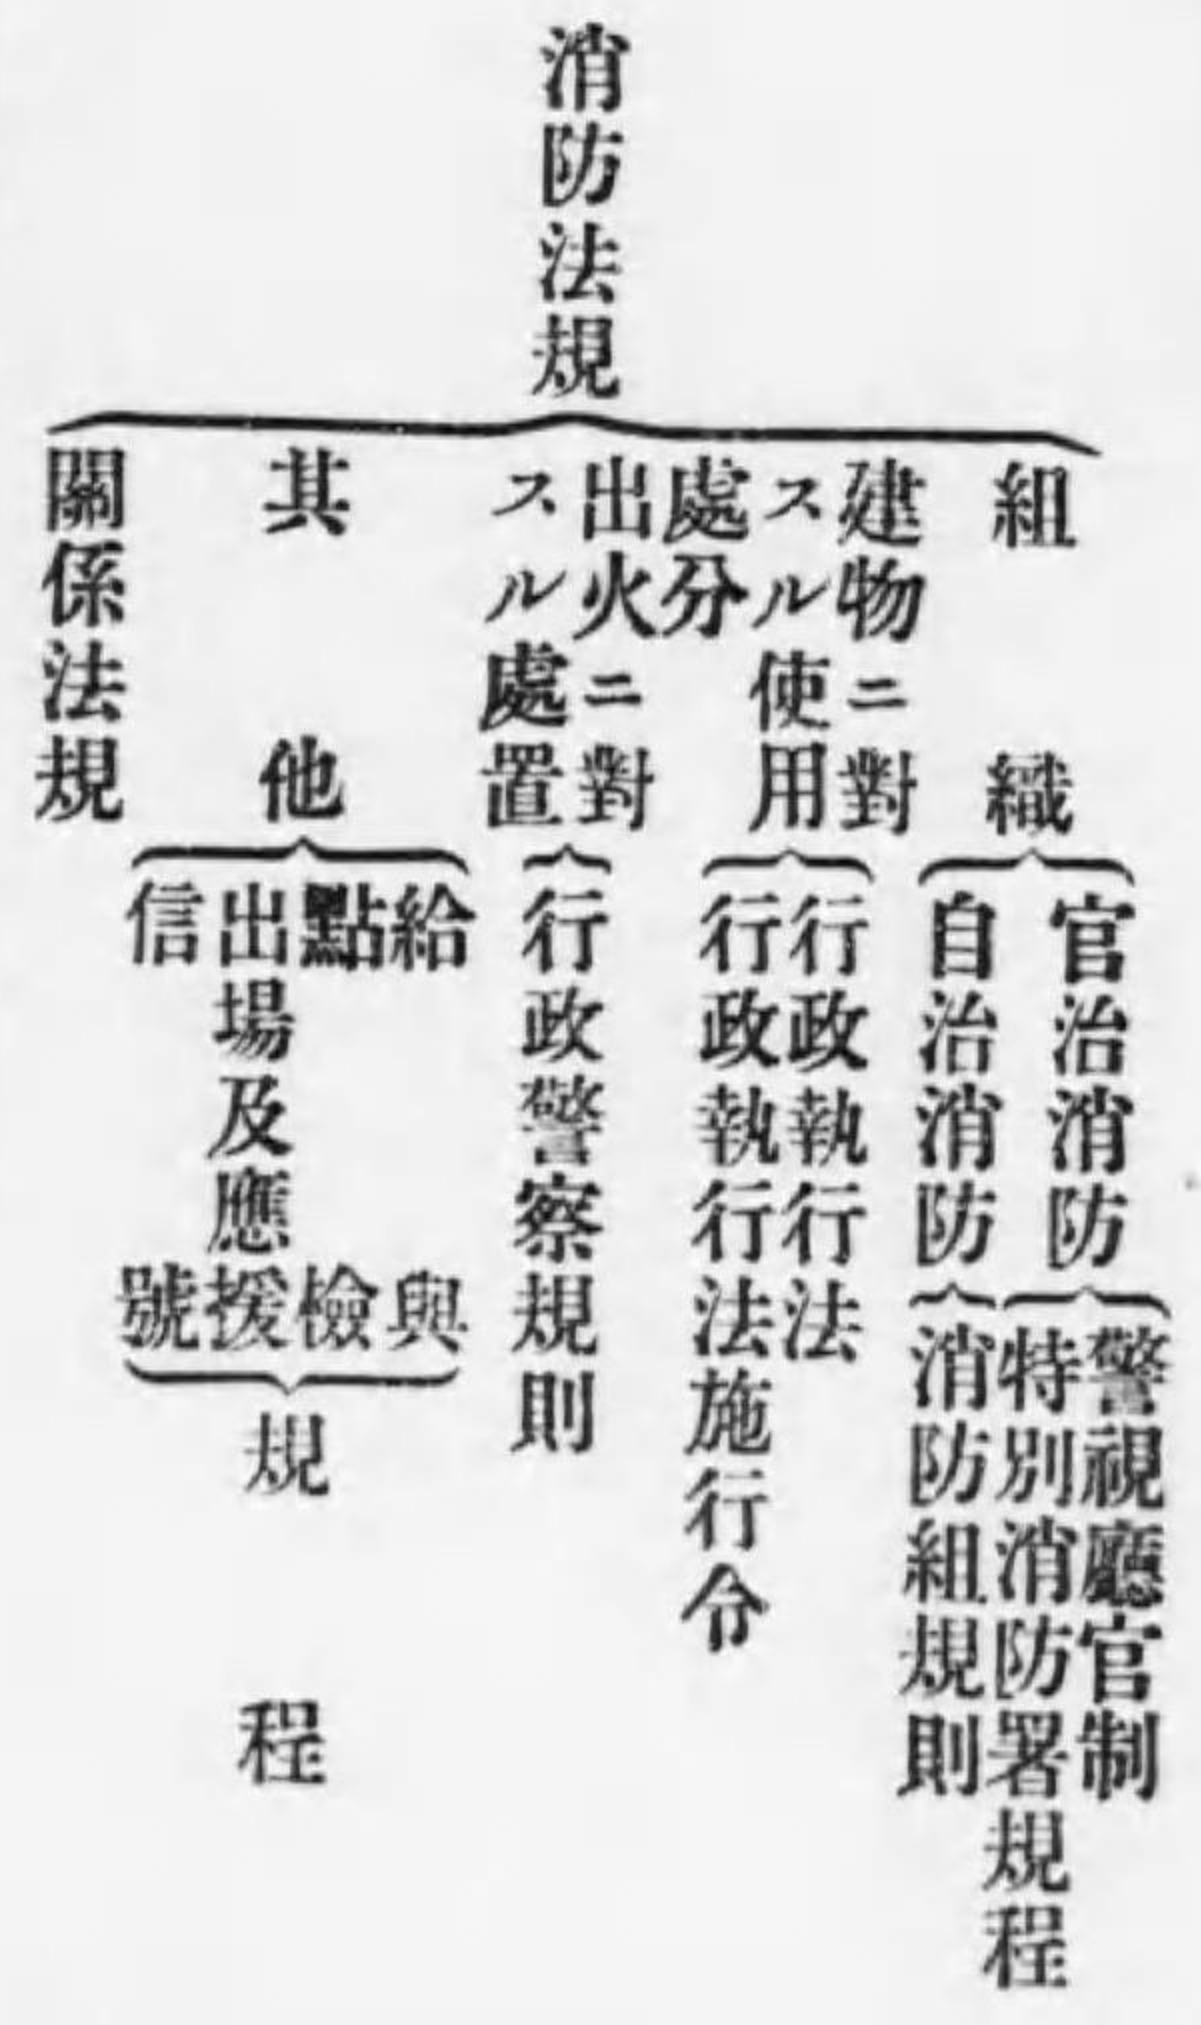 消防法規
組織
官治消防
警視廳官制
特別消防署規程
自治消防
消防組規則
建物ニ對
スル使用
處分
行政執行法
行政執行法施行令
出火ニ對
スル處置
行政警察規則
其他
給與
點檢
出場及應援
信號
規程
關係法規